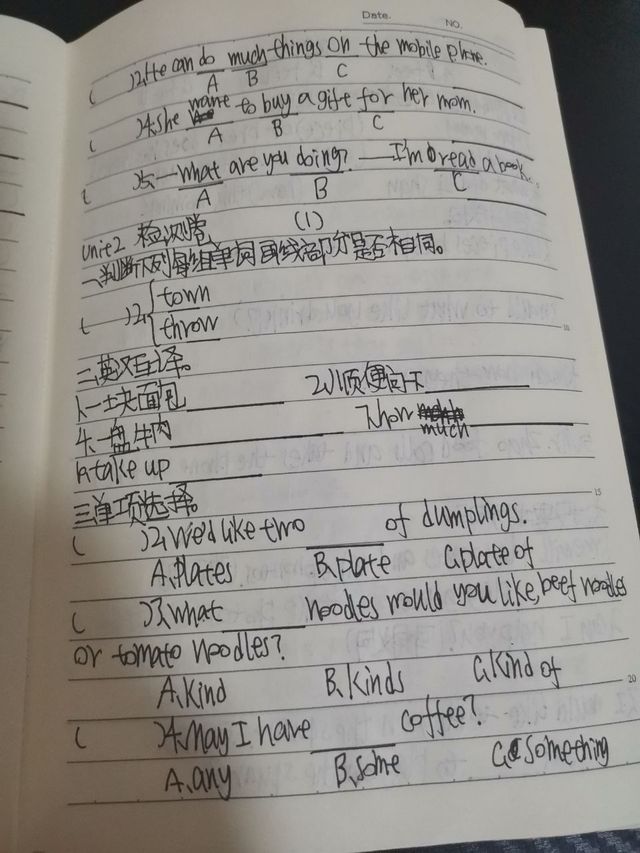 Date. NO.
( )2.He can do much things on the mobile phone.
A B C
( )4.She want to buy a gift for her mom.
A B C
( )5.—What are you doing? —I'm read a book.
A B C
Unit2 检测卷 (1)
一、判断下列每组单词画线部分是否相同。
( )2. { town
throw
二、英汉互译。
1.一块面包________ 2.顺便问下________
4.一盘牛肉________ 7.how much________
10.take up________
三、单项选择。
( )2.We'd like two ____ of dumplings. 15
A.plates B.plate C.plate of
( )3.What ____ noodles would you like, beef noodles
or tomato noodles?
A.kind B.kinds C.kind of 20
( )4.May I have ____ coffee?
A.any B.some C.something